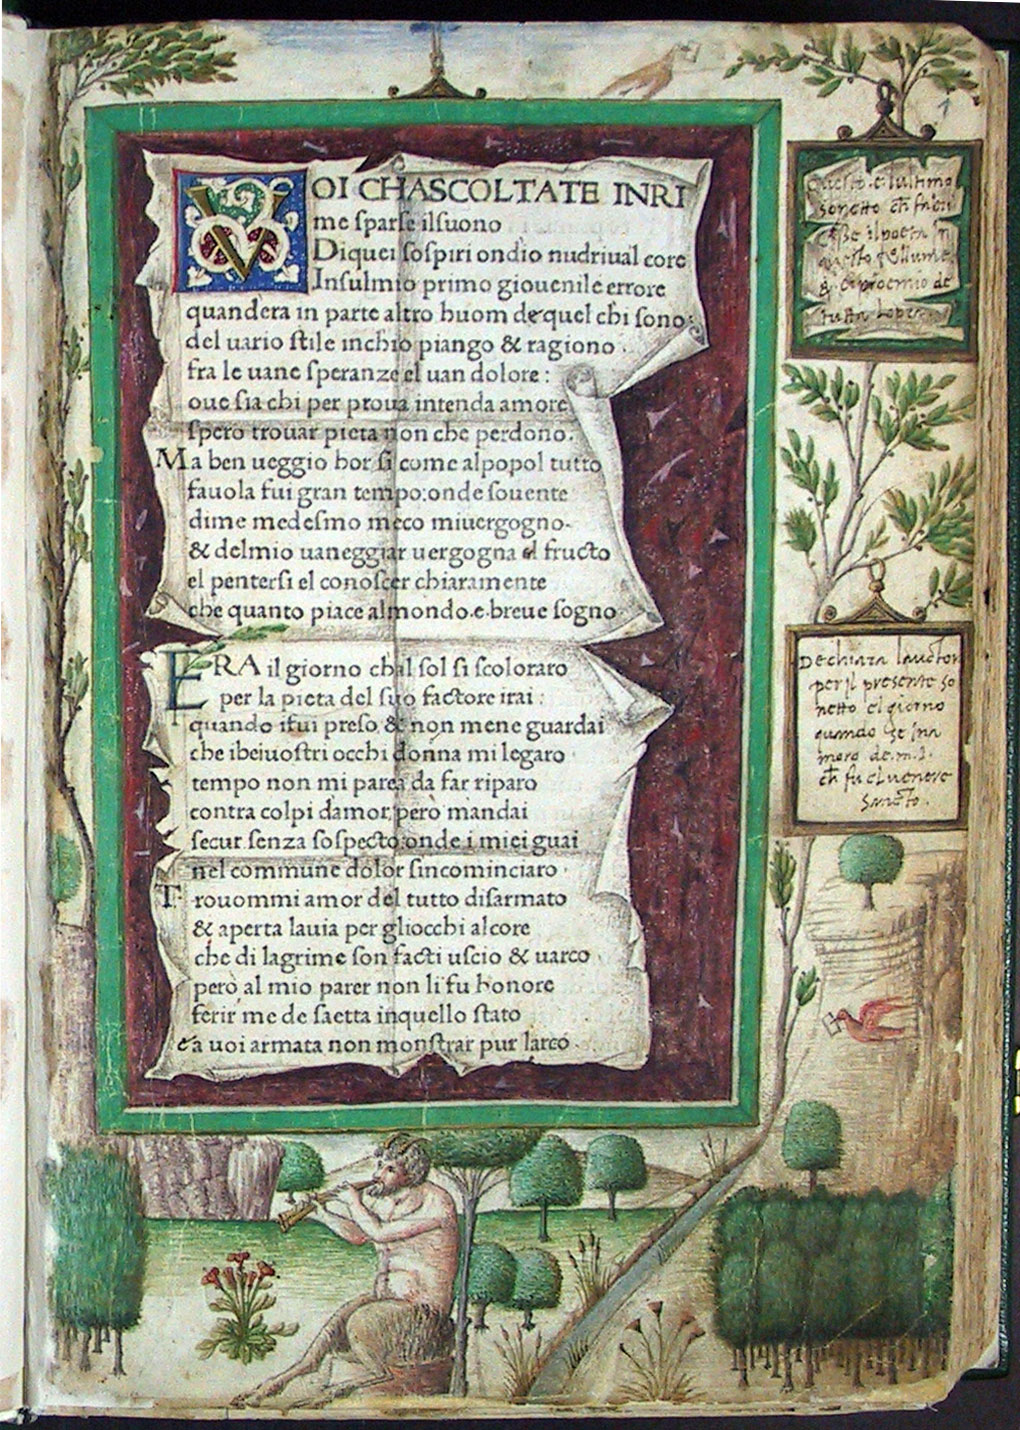 VOI CHASCOLTATE INRI
me sparse ilsuono
Diquei sospiri ondio nudriual core
Insulmio primo giouenile errore
quandera in parte altro huom dequel chi sono:
del uario stile inchio piango & ragiono.
fra le uane speranze el uan dolore:
oue sia chi per proua intenda amore
spero trouar pieta non che perdono.
Ma ben ueggio hor si come alpopol tutto
fauola fui gran tempo:onde souente
dime medesmo meco miuergogno.
& delmio uaneggiar uergogna el fructo
el pentersi el conoscer chiaramente
che quanto piace almondo.e.breue sogno
ERA il giorno chal sol si scoloraro
per la pieta del suo factore irai:
quando ifui preso & non mene guardai
che ibeiuostri occhi donna mi legaro
tempo non mi parea da far riparo
contra colpi damor:però mandai
secur senza sospecto:onde i miei guai
nel commune dolor sincominciaro.
Trouommi amor del tutto disarmato
& aperta lauia per gliocchi alcore
che di lagrime son facti uscio & uarco
però al mio parer non li fu honore
ferir me de saetta inquello stato
& a uoi armata non monstrar pur larco.
Questo. e. lultimo
sonetto
il poeta in
questo
& e proemio de
tutta lopera.
Dechiara lauctor
per il presente so
netto el giorno
quando se ina
moro de.m.l.
ch fu el uenere
Sancto.